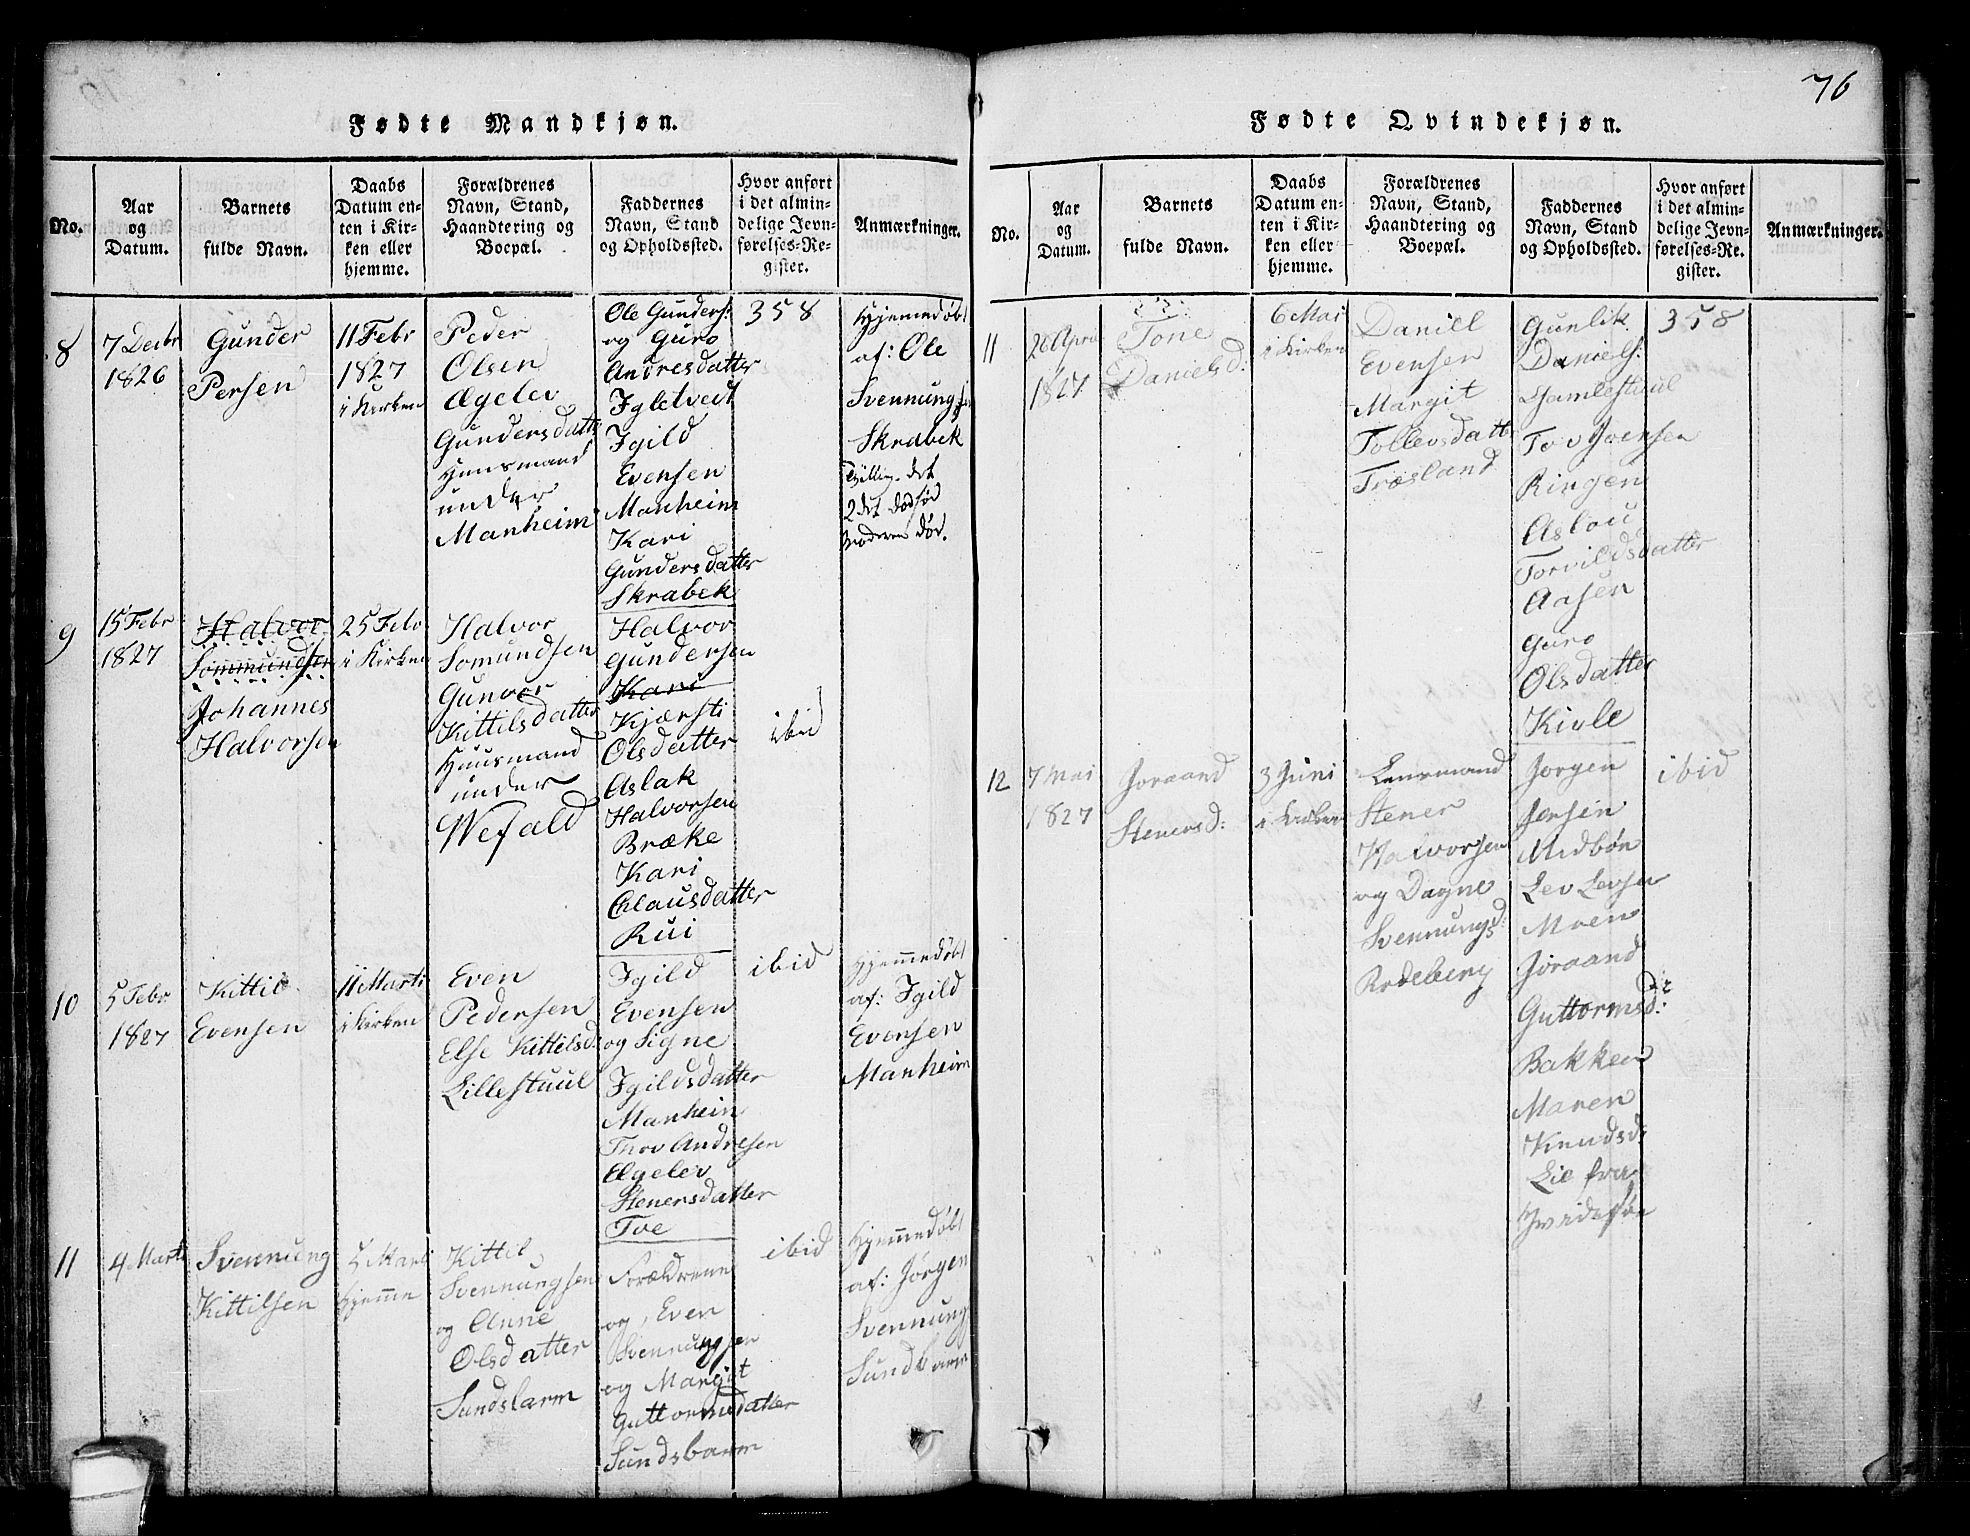 76
Fødte Mandkjøn.
No.
Aar
og
Datum.
Barnets
fulde Navn.
Daabs
Datum en-
ten i Kir-
ken eller
hjemme.
Forældrenes
Navn, Stand,
Haandtering og
Boepæl.
Faddernes
Navn, Stand
og Opholdssted.
Hvor anført
i det almin-
delige Jevn-
førelses-Re-
gister.
Anmærkninger.
8
7 Decbr
1826
Gunder
Persen
11 Febr
1827
i Kirken
Peder
Olsen
Aagelev
Gundersdatter
Huusmand
under
Manheim
Ole Gunders:
og Guro
Andresdatter
Igletveit
Igild
Evensen
Manheim
Kari
Gundersdatter
Skrabek
358
Hjemmedøbt
af: Ole
Svennungsen
Skrabek
Tvilling. det
2det dødfød
Moderen død.
9
15 Febr
1827
Halvor
Sommundsen
Johannes
Halvorsen
25 Febr
i Kirken
Halvor
Somundsen
Gunvor
Kittilsdatter
Huusmand
under
Wefald
Halvor
Gundersen
Kari
Kjærsti
Olsdatter
Aslak
Halvorsen
Bræke
Kari
Clausdatter
Rui
ibid
10
5 Febr
1827
Kittil
Evensen
11 Marti
i Kirken
Even
Pedersen
Else Kittilsd:
Lillestuul
Igild
Evensen
og Signe
Igildsdatter
Manheim
Thov Andresen
Aagelev
Stenersdatter
Tve
ibid
Hjemmedøbt
af: Igild
Evensen
Manheim
11
4 Marti
Svennung
Kittilsen
5 Marti
Hjemme
Kittil
Svennungsen
og Anne
Olsdatter
Sundsbarm
Forældrene
og, Even
Svennungsen
og Margit
Guttormsdatter
Sundsbarm
ibid
Hjemmedøbt
af: Jørgen
Svennungs
Sundbarm
Fødte Qvindekjøn.
No.
Aar
og
Datum.
Barnets
fulde Navn.
Daabs
Datum en-
ten i Kir-
ken eller
hjemme.
Forældrenes
Navn, Stand,
Haandtering og
Boepæl.
Faddernes
Navn, Stand
og Opholdssted.
Hvor anført
i det almin-
delige Jevn-
førelses-Re-
gister.
Anmærkninger.
11
26 April
1827
Tone
Danielsd:
6 Mai
i Kirken
Daniel
Evensen
Margit
Tollevsdatter
Træsland
Gunlik
Daniels:
Gamlestuul
Tov Jvensen
Ringen
Aslou
Torvildsdatter
Aasen
Guro
Olsdatter
Kivle
358
12
7 Mai
1827
Joraand
Stenersd:
3 Juni
i Kirken
Lensmand
Stener
Halvorsen
og Dagne
Svennungsd:
Rodeberg
Jorgen
Jensen
Midbøn
Lev Levsen
Moen
Joraand
Guttormsd:
Bakken
Maren
Knudsd:
Lie fra
Hvidesøe
ibid